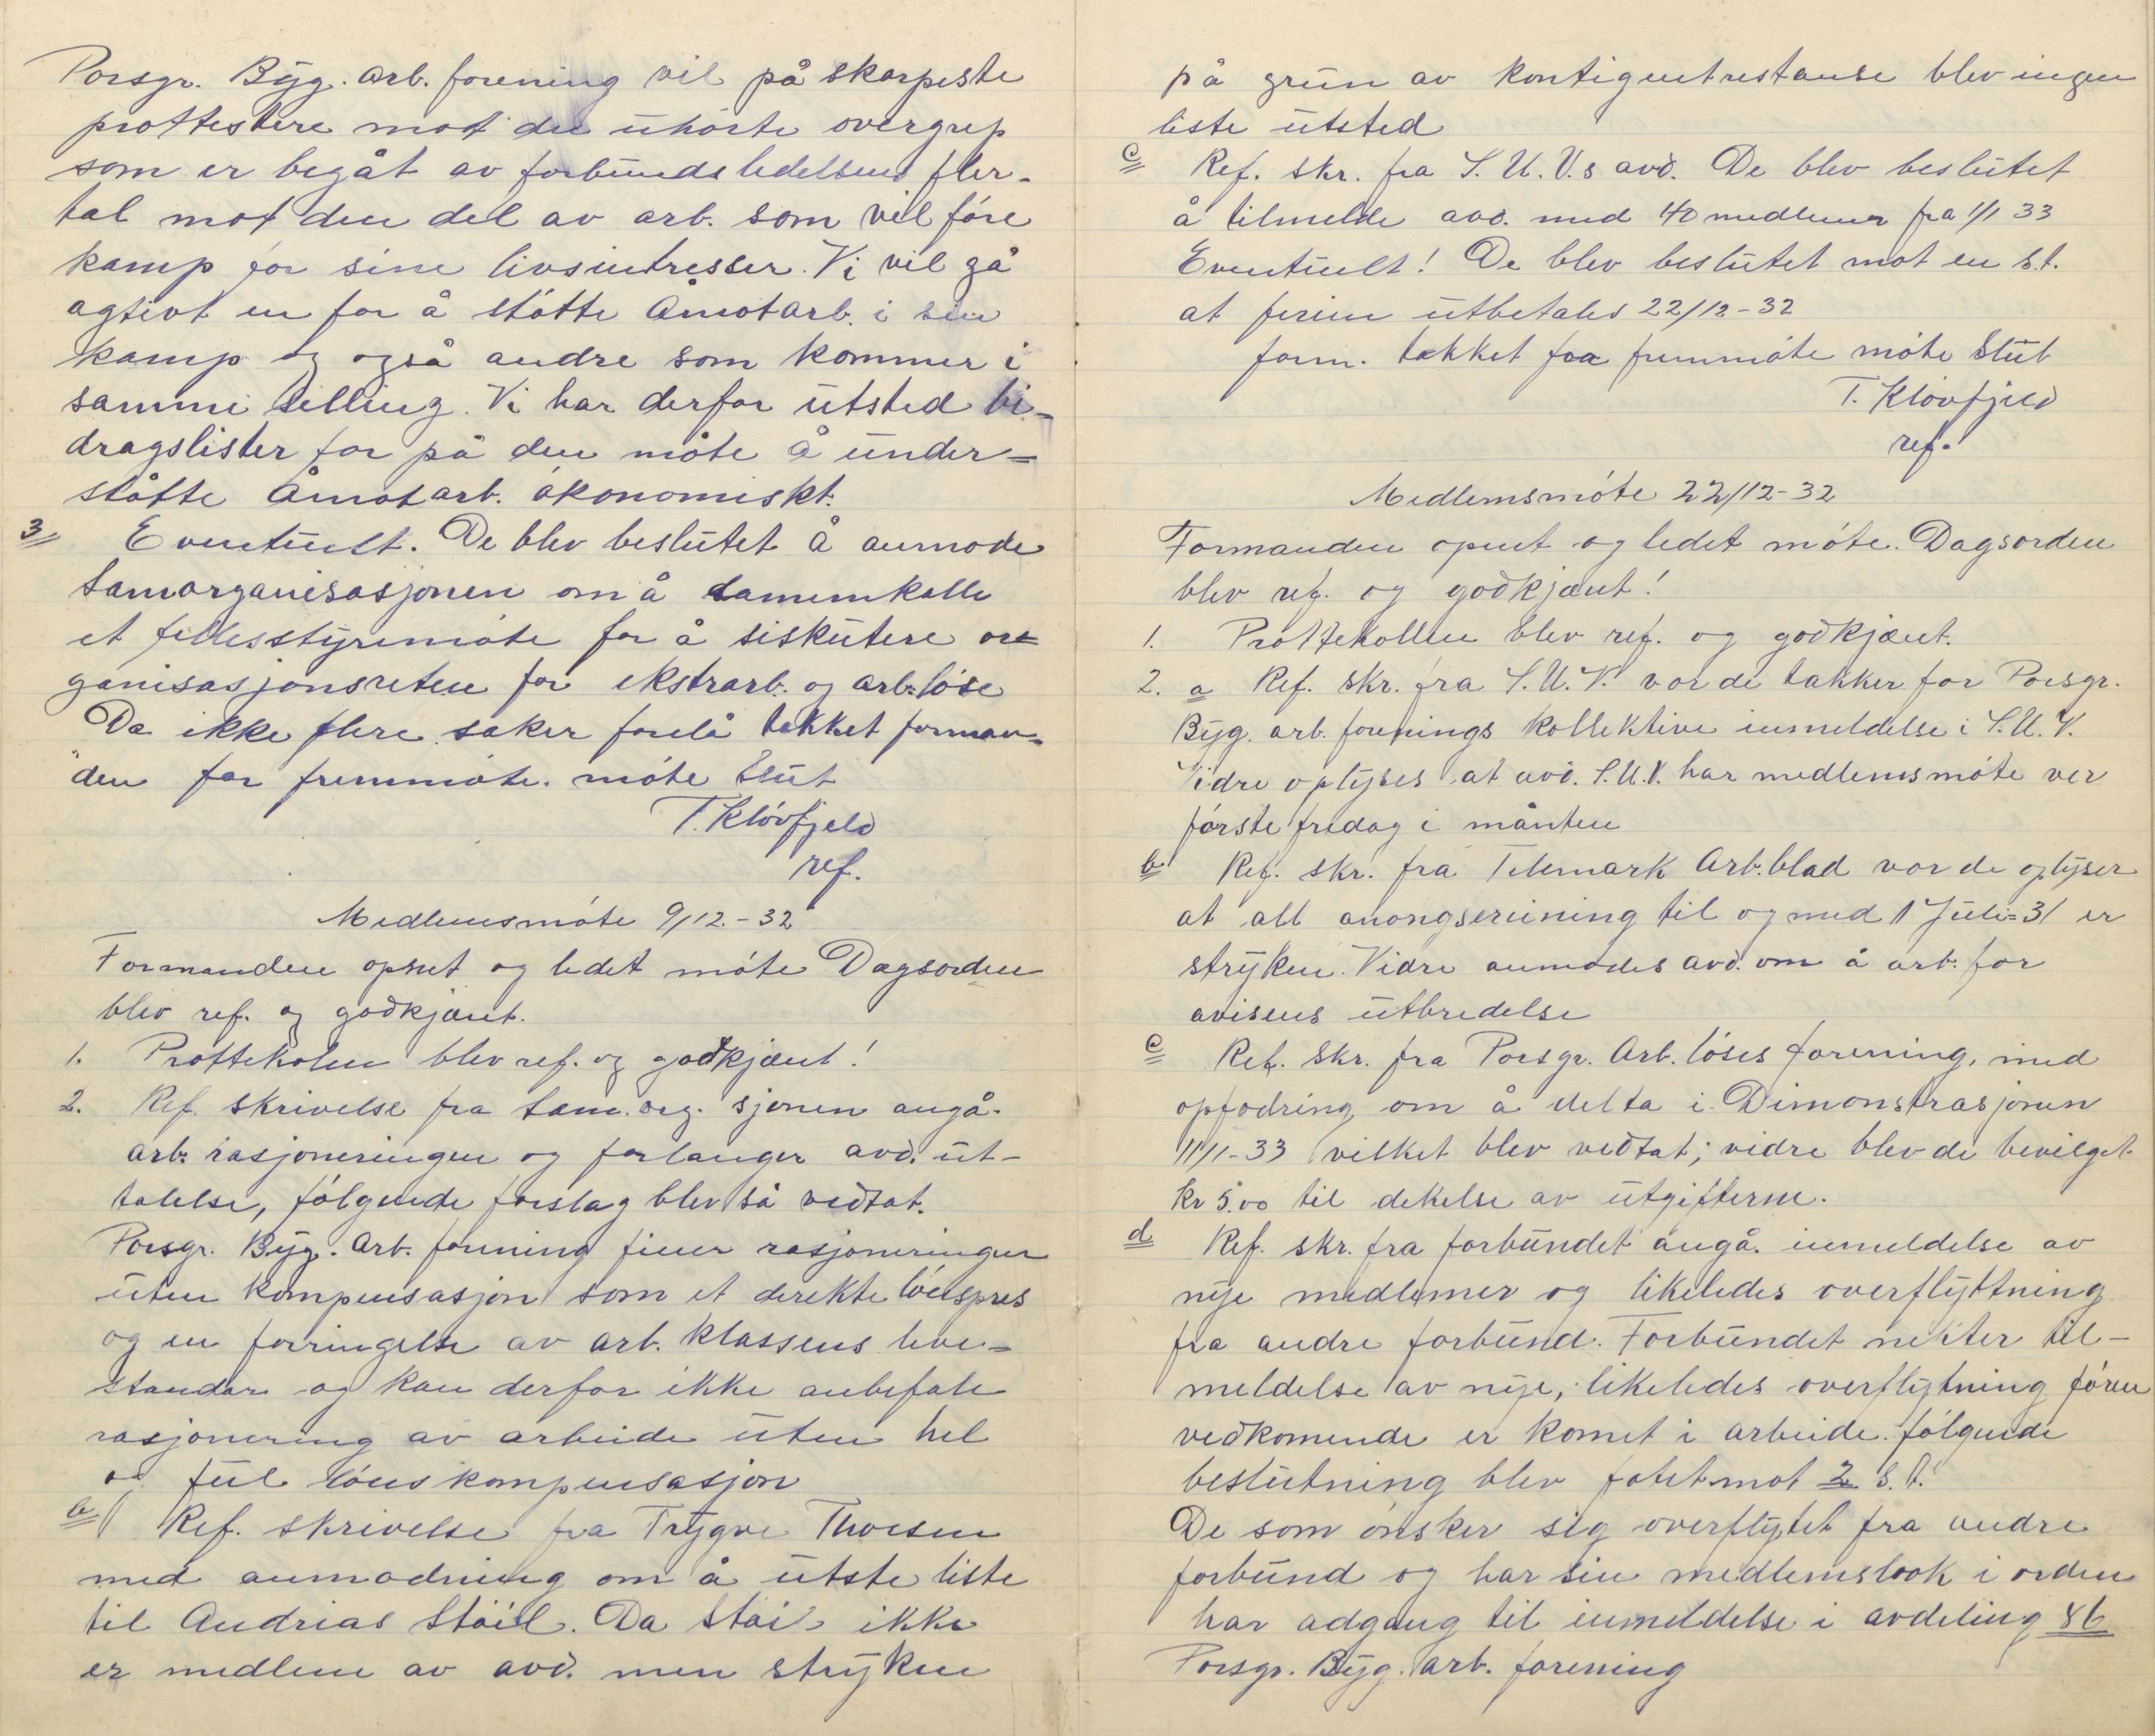 Porsgr. Byg. arb. forening vil på skarpeste
prottestere mot de uhörte overgrep
som er begåt av forbundsledelsens fler-
tal mot den del av arb. som vil före
kamp for sine livsintresser. Vi vil gå
agtivt in for å stötte Åmotarb. i sin
kamp og også andre som kommer i
samme stilling. Vi har derfor utsted bi-
dragslister for på den måte å under=
stötte Åmotarb. ökonomiskt.
3 Eventuelt. De blev beslutet å anmode
samorganisasjonen om å samenkalle
et fellesstyremöte for å siskutere or=
ganisasjonsreten for ekstrarb. og arb.löse
Da ikke flere saker forelå takket forman=
den for fremmöte. möte Slut
T. Klövfjeld
ref.
Medlemsmöte 9/12.-32
Formanden opnet og ledet möte Dagsorden
blev ref. og godkjent.
1. Prottekolen blev ref. og godkjænt!
2. Ref. skrivelse fra sam. org. sjonen angå.
arb. rasjoneringen og forlanger avd. ut-
talelse, fölgende forslag blev så vedtat.
Porsgr. Byg. Arb. forening finer rasjoneringen
uten kompensasjon som et direkte lönspres
og en forringelse av arb. klassens leve=
standar og kan derfor ikke anbefale
rasjonering av arbeide uten hel
og ful lönskompensasjon
b Ref. skrivelse fra Trygve Thorsen
med anmodning om å utste liste
til Andrias Stöil. Da Stöil ikke
er medlem av avd. men stryken
på grun av kontigentrestanse blev ingen
liste utsted
c Ref. skr. fra S.U.V.s avd. De blev beslutet
å tilmelde avd. med 40 medlemer fra 1/1 33
Eventuelt! De blev beslutet mot en s.t.
at ferien utbetales 22/12-32
form. takket for fremmöte möte Slut
T. Klövfjeld
ref.
Medlemsmöte 22/12-32
Formanden opnet og ledet möte. Dagsorden
blev ref. og godkjænt!
1. Prottekollen blev ref. og godkjænt.
2. a Ref. skr. fra S.U.V. vor de takker for Porsgr.
Byg. arb. forenings kollektive inmeldelse i S.U.V.
Vidre oplyses at avd. S.U.V. har medlemsmöte ver
förste fredag i månten
b Ref. skr. fra Telemark Arb.blad vor de oplyser
at all anongsereining til og med 1 Juli=31 er
stryken. Vidre anmodes avd. om å arb. for
avisens utbredelse
c Ref. skr. fra Porsgr. Arb. löses forening, med
opfodring om å delta i Dimonstrasjonen
11/1-33 vilket blev vedtat; vidre blev de bevilget
kr 5.00 til dekelse av utgifterne.
d Ref. skr. fra forbundet angå. inmeldelse av
nye medlemer og likeledes overflyttning
fra andre forbund. Forbundet nekter til-
meldelse av nye, likeledes overflytning fören
vedkomende er komet i arbeide. fölgende
beslutning blev fatet mot 2 s.t.
De som önsker sig overflytet fra andre
forbund og har sin medlemsbok i orden
har adgang til inmeldelse i avdeling 86
Porsgr. Byg. arb. forening